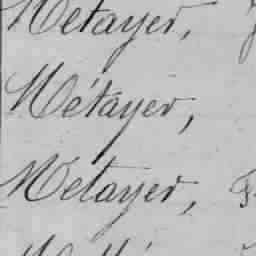 Métayer,
Métayer,
Métayer,